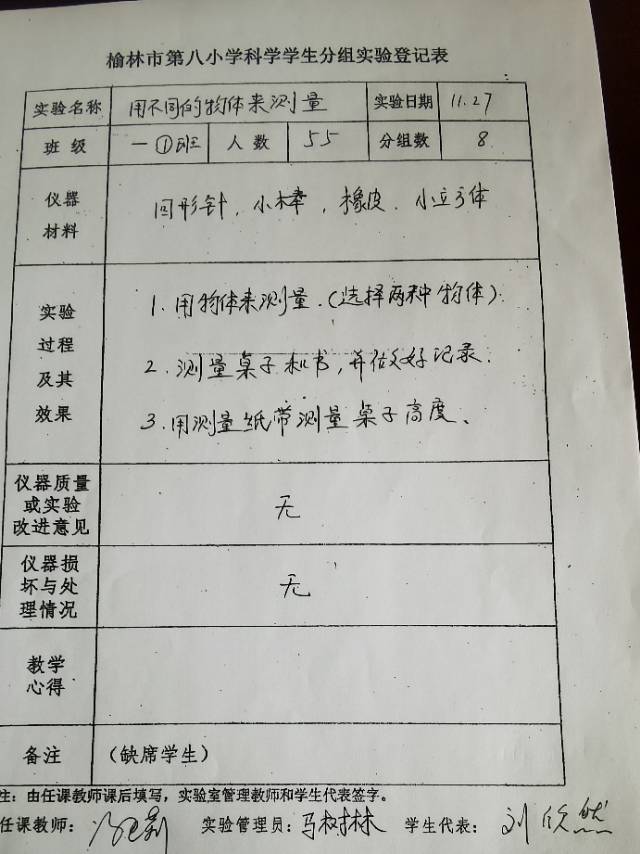 榆林市第八小学科学学生分组实验登记表
实验名称 用不同的物体来测量 实验日期 11.27
班级 一①班 人数 55 分组数 8
仪器
材料
回形针、小棒、橡皮、小立方体
实验
过程
及其
效果
1. 用物体来测量.(选择两种物体)
2. 测量桌子和书,并做好记录.
3. 用测量纸带测量桌子高度、
仪器质量
或实验
改进意见
无
仪器损
坏与处
理情况
无
教学
心得
备注 (缺席学生)
注:由任课教师课后填写,实验室管理教师和学生代表签字。
任课教师: 实验管理员:马树林 学生代表:刘欣然